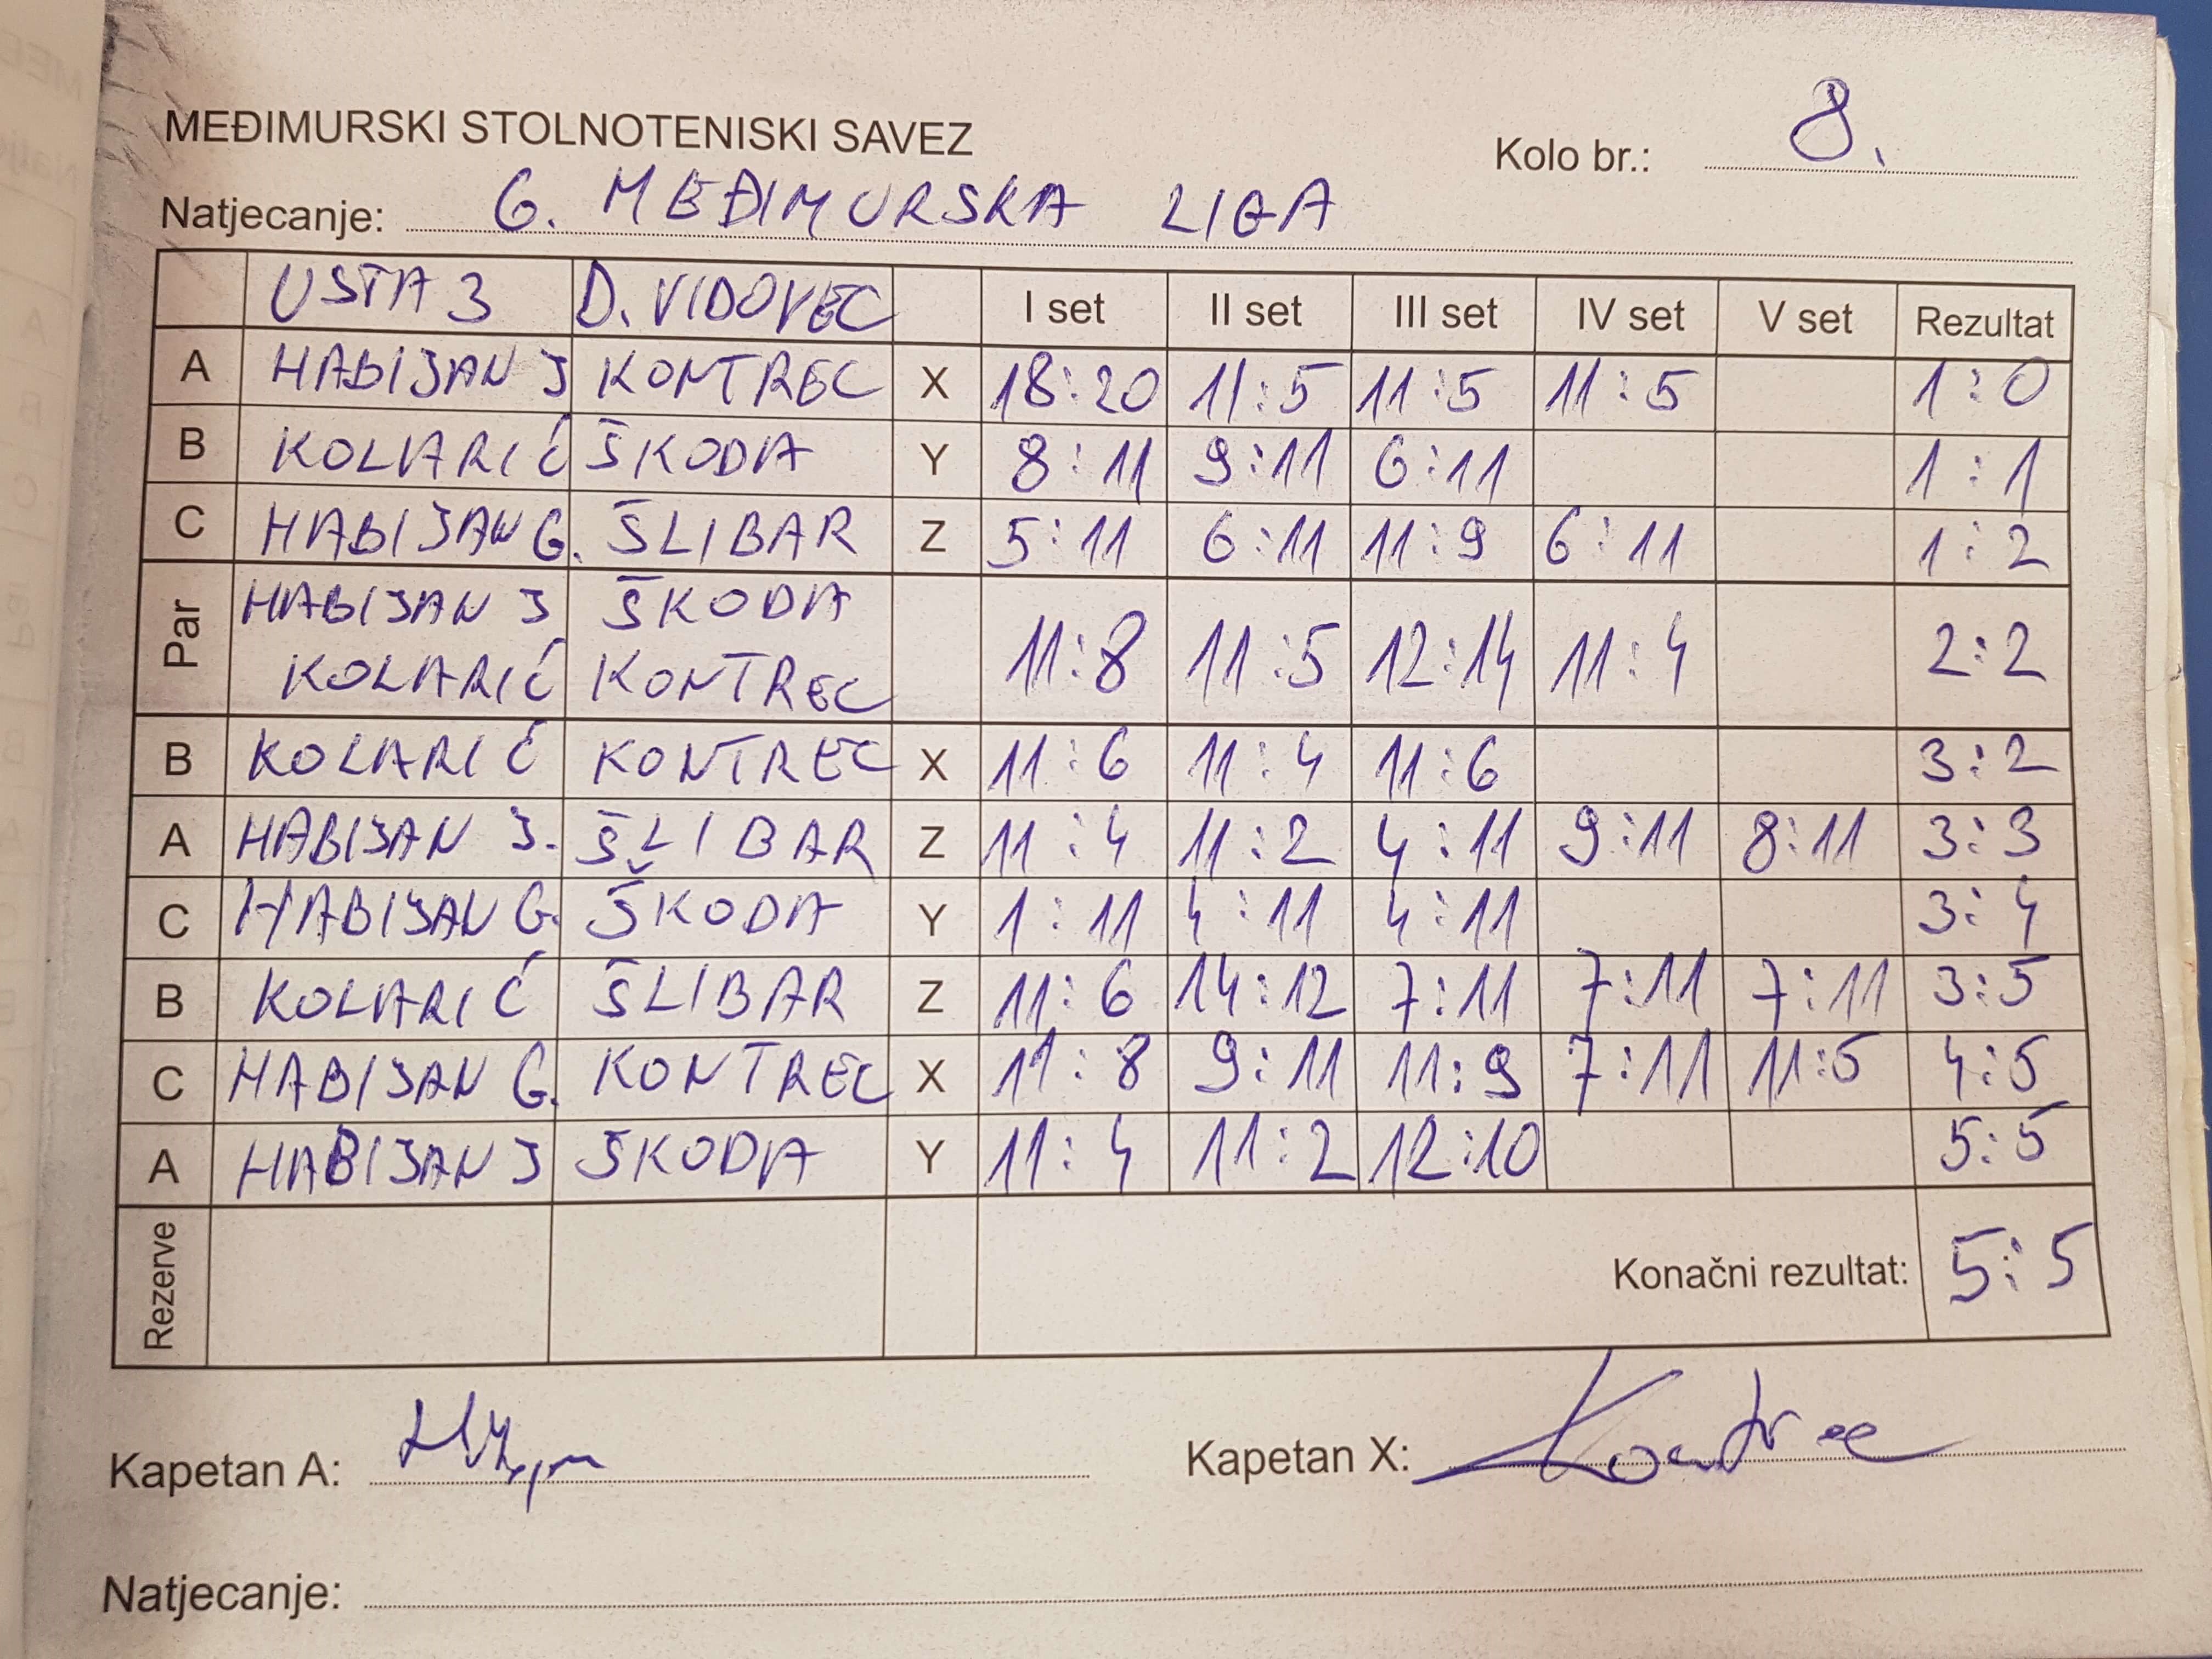 MEĐIMURSKI STOLNOTENISKI SAVEZ
Kolo br.: 8.
Natjecanje: 6. MEĐIMURSKA LIGA
USTA 3 D. VIDOVEC I set II set III set IV set V set Rezultat
A HABIJAN J KONTREC X 18:20 11:5 11:5 11:5 1:0
B KOLARIĆ ŠKODA Y 8:11 9:11 6:11 1:1
C HABIJAN G. ŠLIBAR Z 5:11 6:11 11:9 6:11 1:2
Par HABIJAN J ŠKODA
KOLARIĆ KONTREC 11:8 11:5 12:14 11:4 2:2
B KOLARIĆ KONTREC X 11:6 11:4 11:6 3:2
A HABIJAN J. ŠLIBAR Z 11:4 11:2 4:11 9:11 8:11 3:3
C HABIJAN G. ŠKODA Y 1:11 4:11 4:11 3:4
B KOLARIĆ ŠLIBAR Z 11:6 14:12 7:11 7:11 7:11 3:5
C HABIJAN G. KONTREC X 11:8 9:11 11:9 7:11 11:5 4:5
A HABIJAN J ŠKODA Y 11:4 11:2 12:10 5:5
Rezerve Konačni rezultat: 5:5
Kapetan A: Kapetan X: Kontrec
Natjecanje: